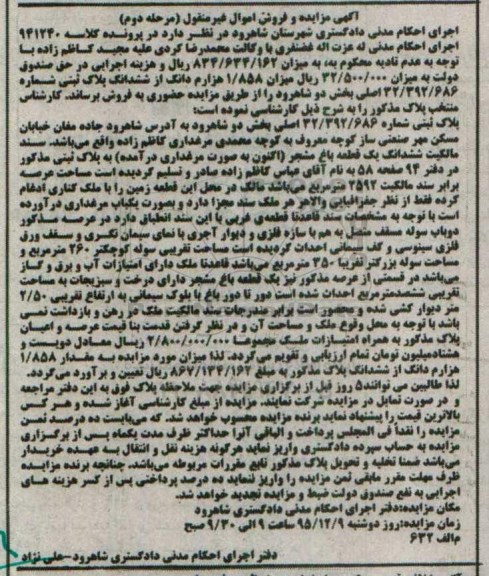 آگهی مزایده و فروش اموال غیرمنقول (مرحله دوم)
اجرای احکام مدنی دادگستری شهرستان شاهرود در نظر دارد در پرونده کلاسه ۹۴۱۲۴۰
اجرای احکام مدنی له عزت اله غضنفری با وکالت محمدرضا کردی علیه مجید کاظم زاده با
توجه به عدم تادیه محکوم به، به میزان ۸۳۴/۶۳۴/۱۶۲ ریال و هزینه اجرایی در حق صندوق
دولت به میزان ۳۲/۵۰۰/۰۰۰ ریال میزان ۱/۸۵۸ هزارم دانگ از ششدانگ پلاک ثبتی شماره
۳۲/۳۹۲/۶۸۶ اصلی بخش دو شاهرود را از طریق مزایده حضوری به فروش برساند. کارشناس
منتخب پلاک مذکور را به شرح ذیل کارشناسی نموده است:
پلاک ثبتی شماره ۳۲/۳۹۲/۶۸۶ اصلی بخش دو شاهرود به آدرس شاهرود جاده مغان خیابان
مسکن مهر صنعتی ساز کوچه معروف به کوچه محمدی مرغداری کاظم زاده واقع می‌باشد. سند
مالکیت ششدانگ یک قطعه باغ مشجر (اکنون به صورت مرغداری درآمده) به پلاک ثبتی مذکور
در دفتر ۹۴ صفحه ۵۸ به نام آقای عباس کاظم زاده صادر و تسلیم گردیده است مساحت عرصه
برابر سند مالکیت ۲۵۹۲ مترمربع می‌باشد مالک در محل این قطعه زمین را با ملک کناری ادغام
کرده فقط از نظر جغرافیایی والاهر هر ملک سند مجزا دارد و بصورت یکباب مرغداری درآورده
است با توجه به مشخصات سند قاعدتا قطعه‌ی غربی با این سند انطباق دارد در عرصه مذکور
دوباب سوله مسقف متصل به هم با سازه فلزی و دیوار آجری با نمای سیمان تگری و سقف ورق
فلزی سینوسی و کف سیمانی احداث گردیده است مساحت تقریبی سوله کوچکتر ۲۶۰ مترمربع و
مساحت سوله بزرگتر تقریبا ۳۵۰ مترمربع می‌باشد قاعدتا ملک دارای امتیازات آب و برق و گاز
می‌باشد در قسمتی از عرصه مذکور نیز یک قطعه باغ مشجر دارای درخت و سبزیجات به مساحت
تقریبی ششصدمترمربع احداث شده است دور تا دور باغ با بلوک سیمانی به ارتفاع تقریبی ۲/۵۰
متر دیوار کشی شده و محصور است برابر مندرجات سند مالکیت ملک در رهن و بازداشت نمی
باشد با توجه به محل وقوع ملک و مساحت آن و در نظر گرفتن قدمت بنا قیمت عرصه و اعیان
پلاک مذکور به همراه امتیازات ملک مجموعا ۲/۸۰۰/۰۰۰/۰۰۰ ریال معادل دویست و
هشتادمیلیون تومان تمام ارزیابی و تقویم می‌گردد. لذا میزان مورد مزایده به مقدار ۱/۸۵۸
هزارم دانگ از ششدانگ پلاک مذکور به مبلغ ۸۶۷/۱۳۴/۱۶۲ ریال تعیین و برآورد می‌گردد.
لذا طالبین می توانند۵ روز قبل از برگزاری مزایده جهت ملاحظه پلاک فوق به این دفتر مراجعه
و در صورت تمایل در مزایده شرکت نمایند. مزایده از مبلغ کارشناسی آغاز شده و هر کس
بالاترین قیمت را پیشنهاد نماید برنده مزایده محسوب خواهد شد. که می‌بایست ده درصد ثمن
مزایده را نقداً فی المجلس پرداخت و الباقی آنرا حداکثر ظرف مدت یکماه پس از برگزاری
مزایده به حساب سپرده دادگستری واریز نماید هرگونه هزینه نقل و انتقال به عهده خریدار
می‌باشد ضمنا تخلیه و تحویل پلاک مذکور تابع مقررات مربوطه می‌باشد. چنانچه برنده مزایده
ظرف مهلت مقرر مابقی ثمن مزایده را واریز ننماید ده درصد پرداختی پس از کسر هزینه های
اجرایی به نفع صندوق دولت ضبط و مزایده تجدید خواهد شد.
مکان مزایده:دفتر اجرای احکام مدنی دادگستری شاهرود
زمان مزایده:روز دوشنبه ۹۵/۱۲/۹ ساعت ۹ الی ۹/۳۰ صبح
م‌الف ۶۳۲
دفتر اجرای احکام مدنی دادگستری شاهرود-علی نژاد